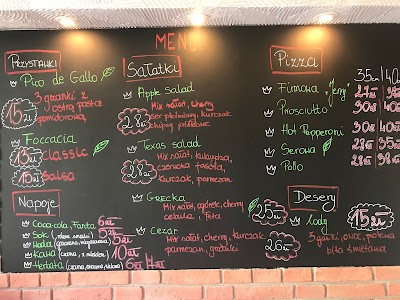 MENU
PRZYSTAWKI
Pico de Gallo
3 grzanki z
ostrą pastą
pomidorową
15zł
Foccacia
13zł classic
15zł salsa
Napoje
Coca-cola, Fanta 6zł
Sok 5zł
Woda 5zł
Kawa 10zł
Herbata 6zł
SAŁATKI
Apple Salad
Mix sałat, cherry
ser pleśniowy, kurczak
chipsy
28zł
Texas salad
Mix sałat, kukurydza,
czerwona fasola,
kurczak, parmezan
28zł
Grecka
Mix sałat, ogórek, cherry
cebula, feta
25zł
Cezar
Mix sałat, cherry, kurczak
parmezan, grzanki
26zł
Pizza
35cm 40
Firmowa „Jerry”
Prosciutto 30zł 40
Hot Pepperoni 30zł 40
Serowa 28zł 35
Pollo 28zł 38
Desery
Lody 15zł
3 gałki, owoc, polewa
bita śmietana